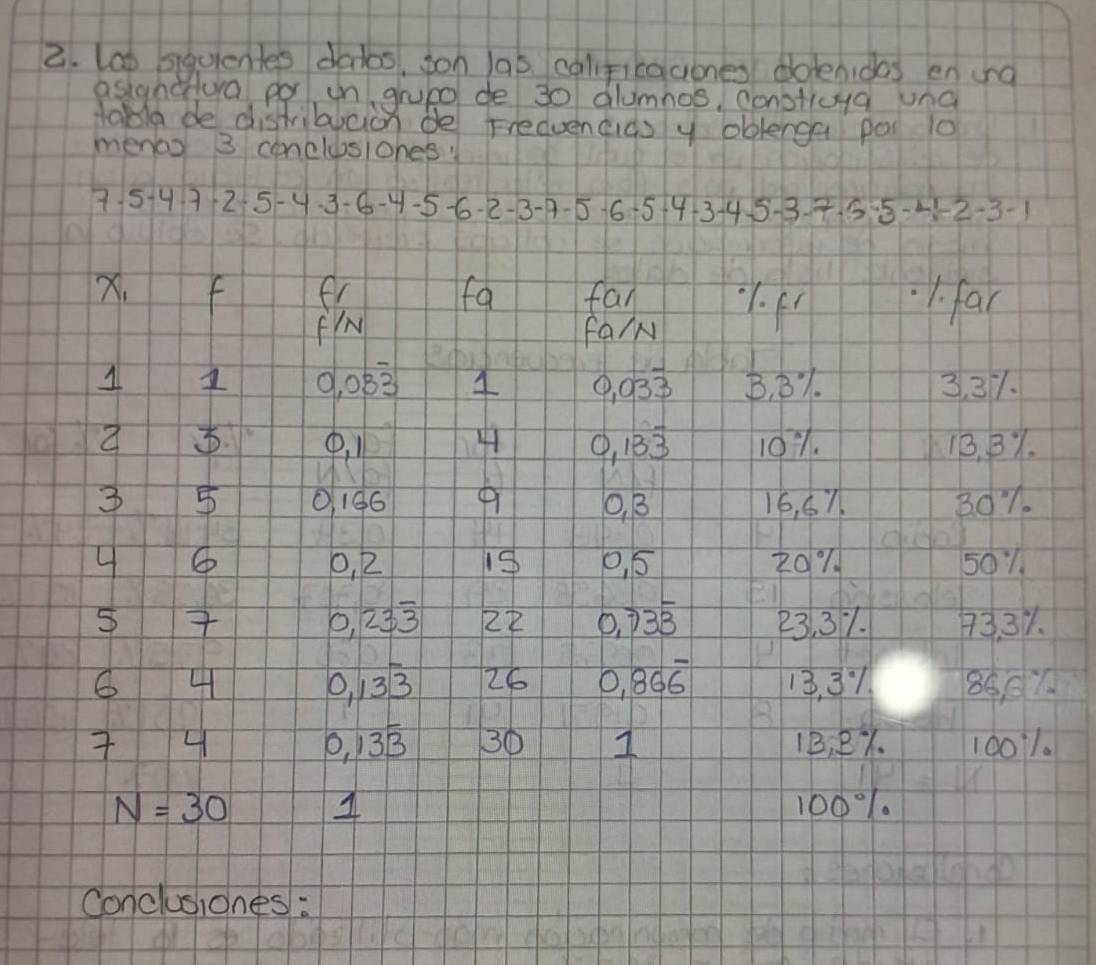 2. Los siguientes datos, son las calificaciones obtenidas en una
asignatura por un grupo de 30 alumnos. Construya una
tabla de distribución de Frecuencias y obtenga por lo
menos 3 conclusiones:
7-5-4-7-2-5-4-3-6-4-5-6-2-3-7-5-6-5-4-3-4-5-3-7-6-5-4-2-3-1
X, f fr fa far %fr %far
f/N fa/N
1 1 0,033̅ 1 0,033̅ 3,3% 3,3%
2 3 0,1 4 0,133̅ 10% 13,3%
3 5 0,166 9 0,3 16,6% 30%
4 6 0,2 15 0,5 20% 50%
5 7 0,233̅ 22 0,733̅ 23,3% 73,3%
6 4 0,133̅ 26 0,866̅ 13,3% 86,6%
7 4 0,133̅ 30 1 13,3% 100%
N = 30 1 100%
Conclusiones: